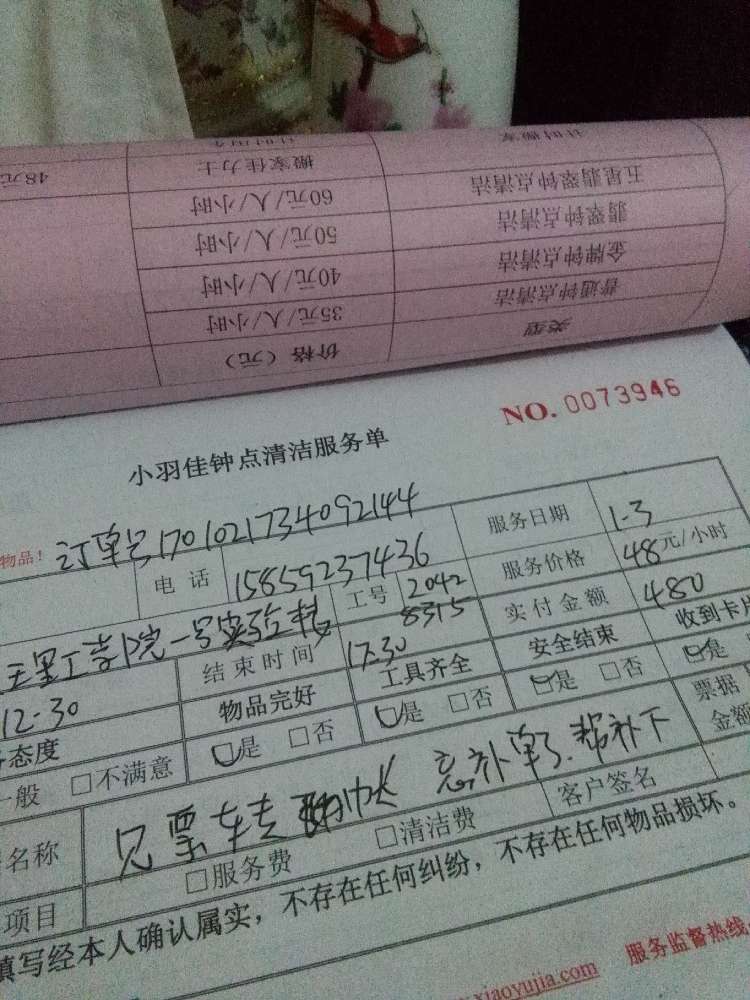 计时搬家
搬家佳力士 48元
五星翡翠钟点清洁 60元/人/小时
翡翠钟点清洁 50元/人/小时
金牌钟点清洁 40元/人/小时
普通钟点清洁 35元/人/小时
类型 价格（元）
NO. 0073946
小羽佳钟点清洁服务单
物品！ 订单号1701021734092144 服务日期 1-3
电话 15859237436 服务价格 48元/小时
工学院一号实验楼 工号 2042 8315 实付金额 480
12-30 结束时间 17-30 安全结束 收到卡片
态度 物品完好 工具齐全 是 否 是
一般 不满意 是 否 是 否 票据
名称 见票转 忘补单了.帮补下 金额
项目 服务费 清洁费 客户签名
填写经本人确认属实，不存在任何纠纷，不存在任何物品损坏。
xiaoyujia.com 服务监督热线